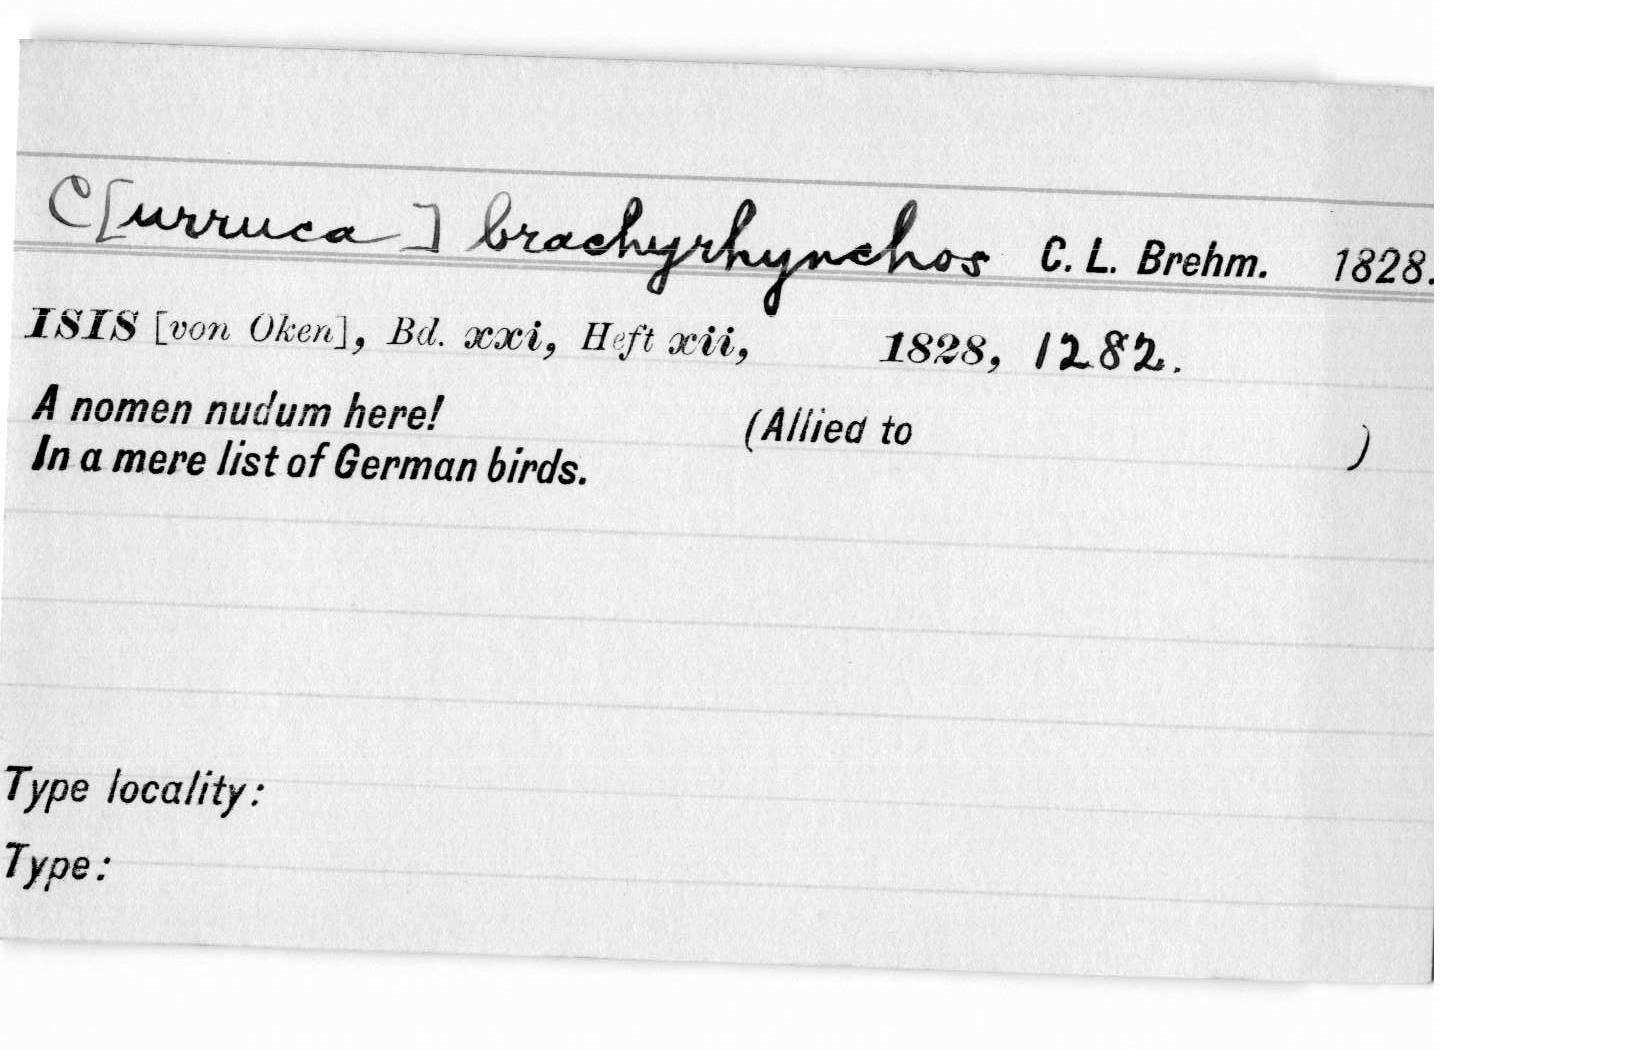 C[urruca] brachyrhynchos C. L. Brehm. 1828.
ISIS [von Oken], Bd. xxi, Heft xii, 1828, 1282.
A nomen nudum here! (Allied to )
In a mere list of German birds.
Type locality:
Type: